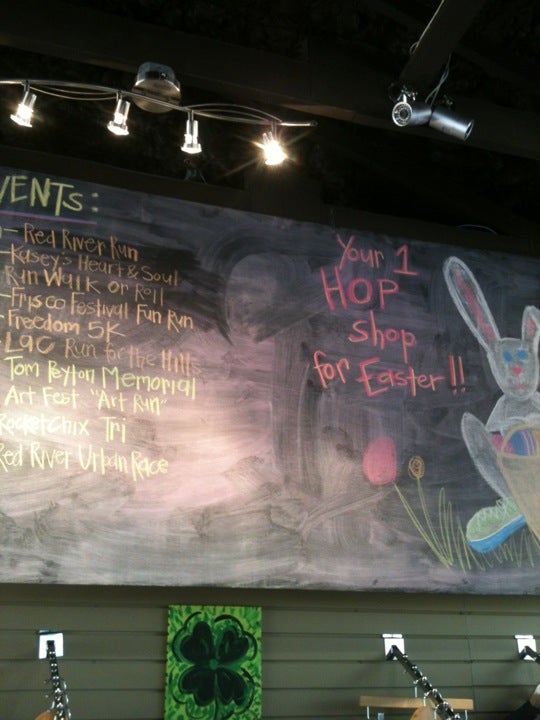 VENTS:
- Red River Run
- Kasey's Heart & Soul
Run Walk or Roll
- Frisco Festival Fun Run
- Freedom 5K
- LQC Run for the Hills
Tom Peyton Memorial
Art Fest "Art Run"
RocketChix Tri
Red River Urban Race
Your 1
HOP
shop
for Easter!!